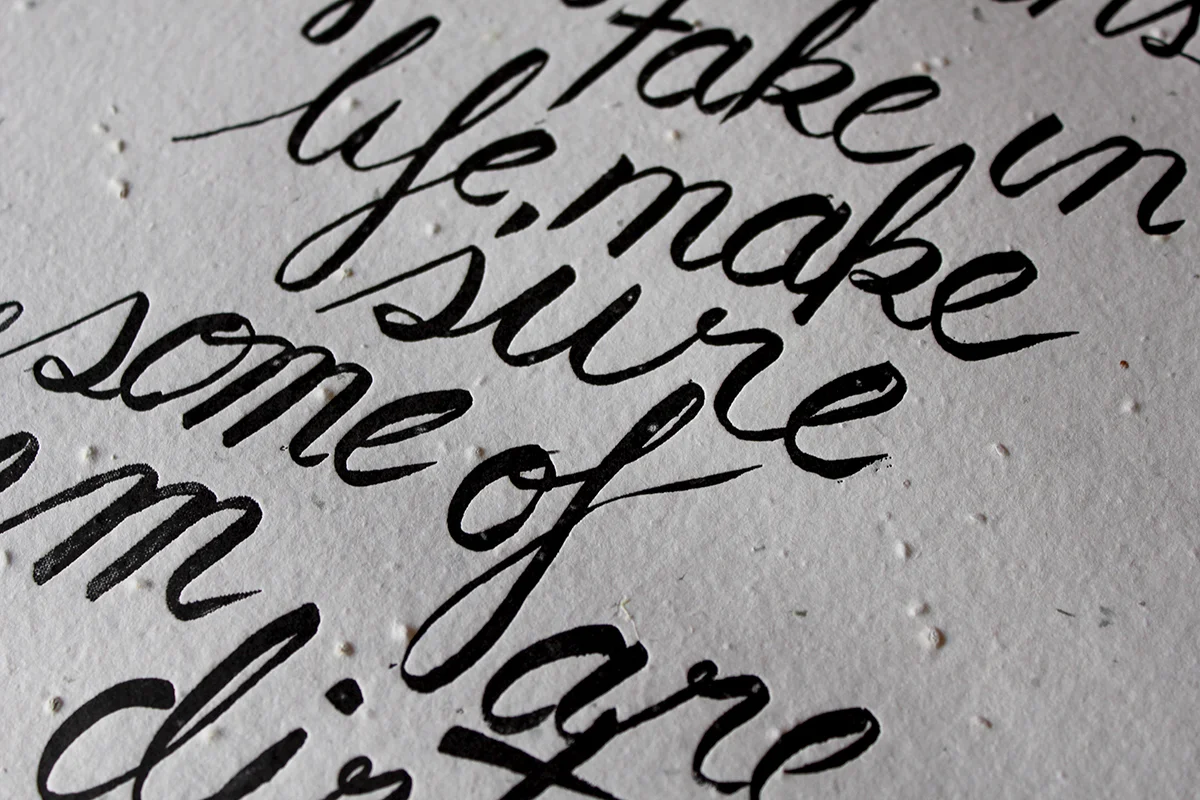 take in
life, make
sure
some of
are
dirt